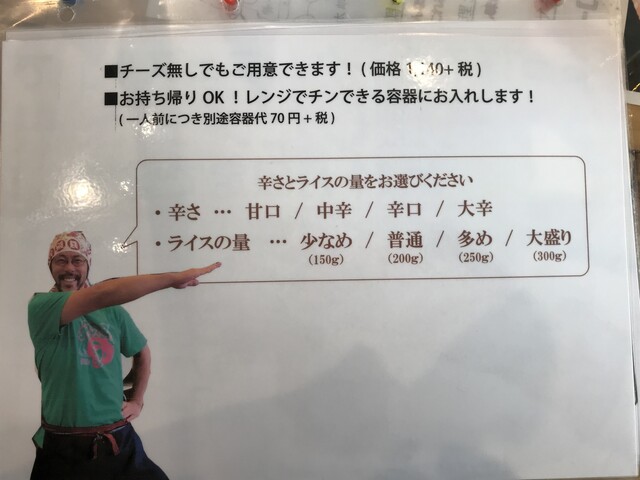 ■チーズ無しでもご用意できます！(価格1,140+税)
■お持ち帰りOK！レンジでチンできる容器にお入れします！
(一人前につき別途容器代70円+税)
辛さとライスの量をお選びください
・辛さ … 甘口 / 中辛 / 辛口 / 大辛
・ライスの量 … 少なめ / 普通 / 多め / 大盛り
(150g) (200g) (250g) (300g)